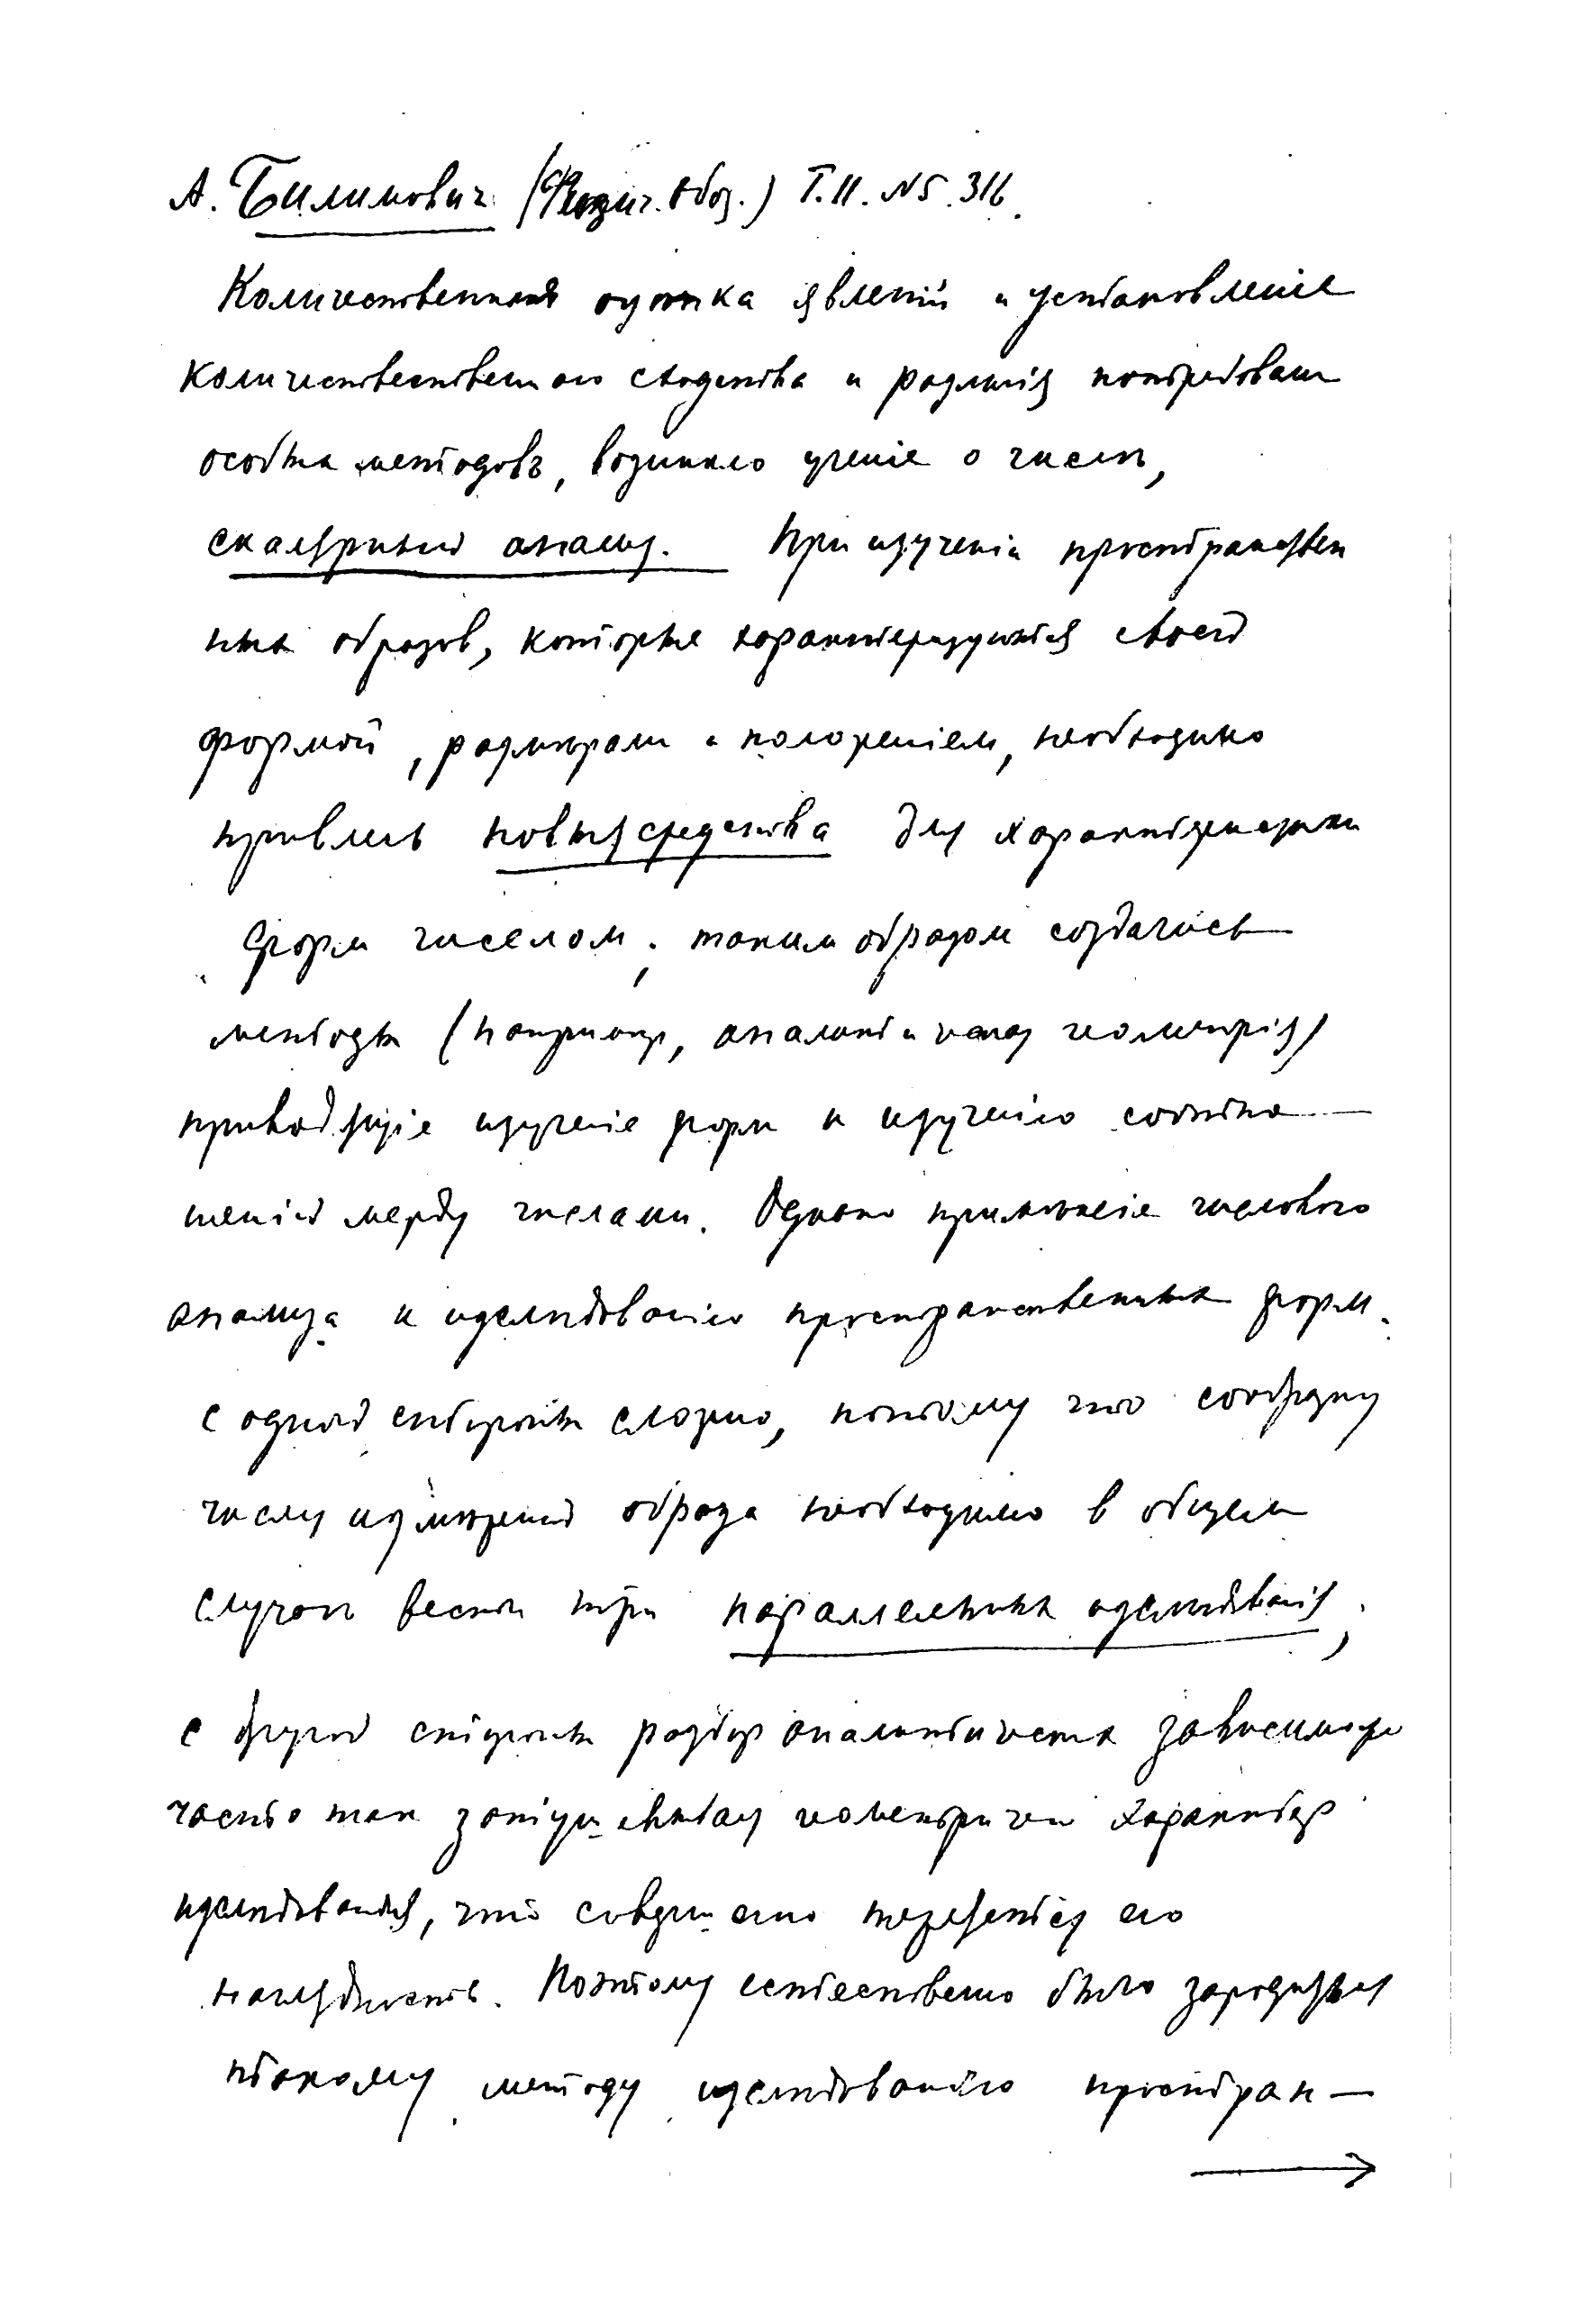 А. Билимович (Физич. Обоз.) Т.11. N5. 316.
Количественная оценка явленій и установленіе
количествественнаго сходства и различія потребовали
особых методовъ, возникло ученіе о числѣ,
скалярный анализ. При изученіи пространствен
ных образов, которые характеризуются своей
формой, размѣрами и положеніем, необходимо
привлечь новыя средства для характеризации
форм числом; таким образом создались
методы (напримѣр, аналитическая геометрія)
приводящіе изученіе форм к изученію соотно—
шеній между числами. Однако примѣненіе числового
анализа к изслѣдованію пространственных форм
с одной стороны сложно, потому что сообразну
числу измѣреній образа необходимо в общем
случаѣ вести три параллельных изслѣдованія;
с другой стороны разбор аналитических зависимостей
часто так затушевывает геометрическій характер
изслѣдованія, что совершенно теряется его
наглядность. Поэтому естественно было зародиться
такому методу изслѣдованію простран—